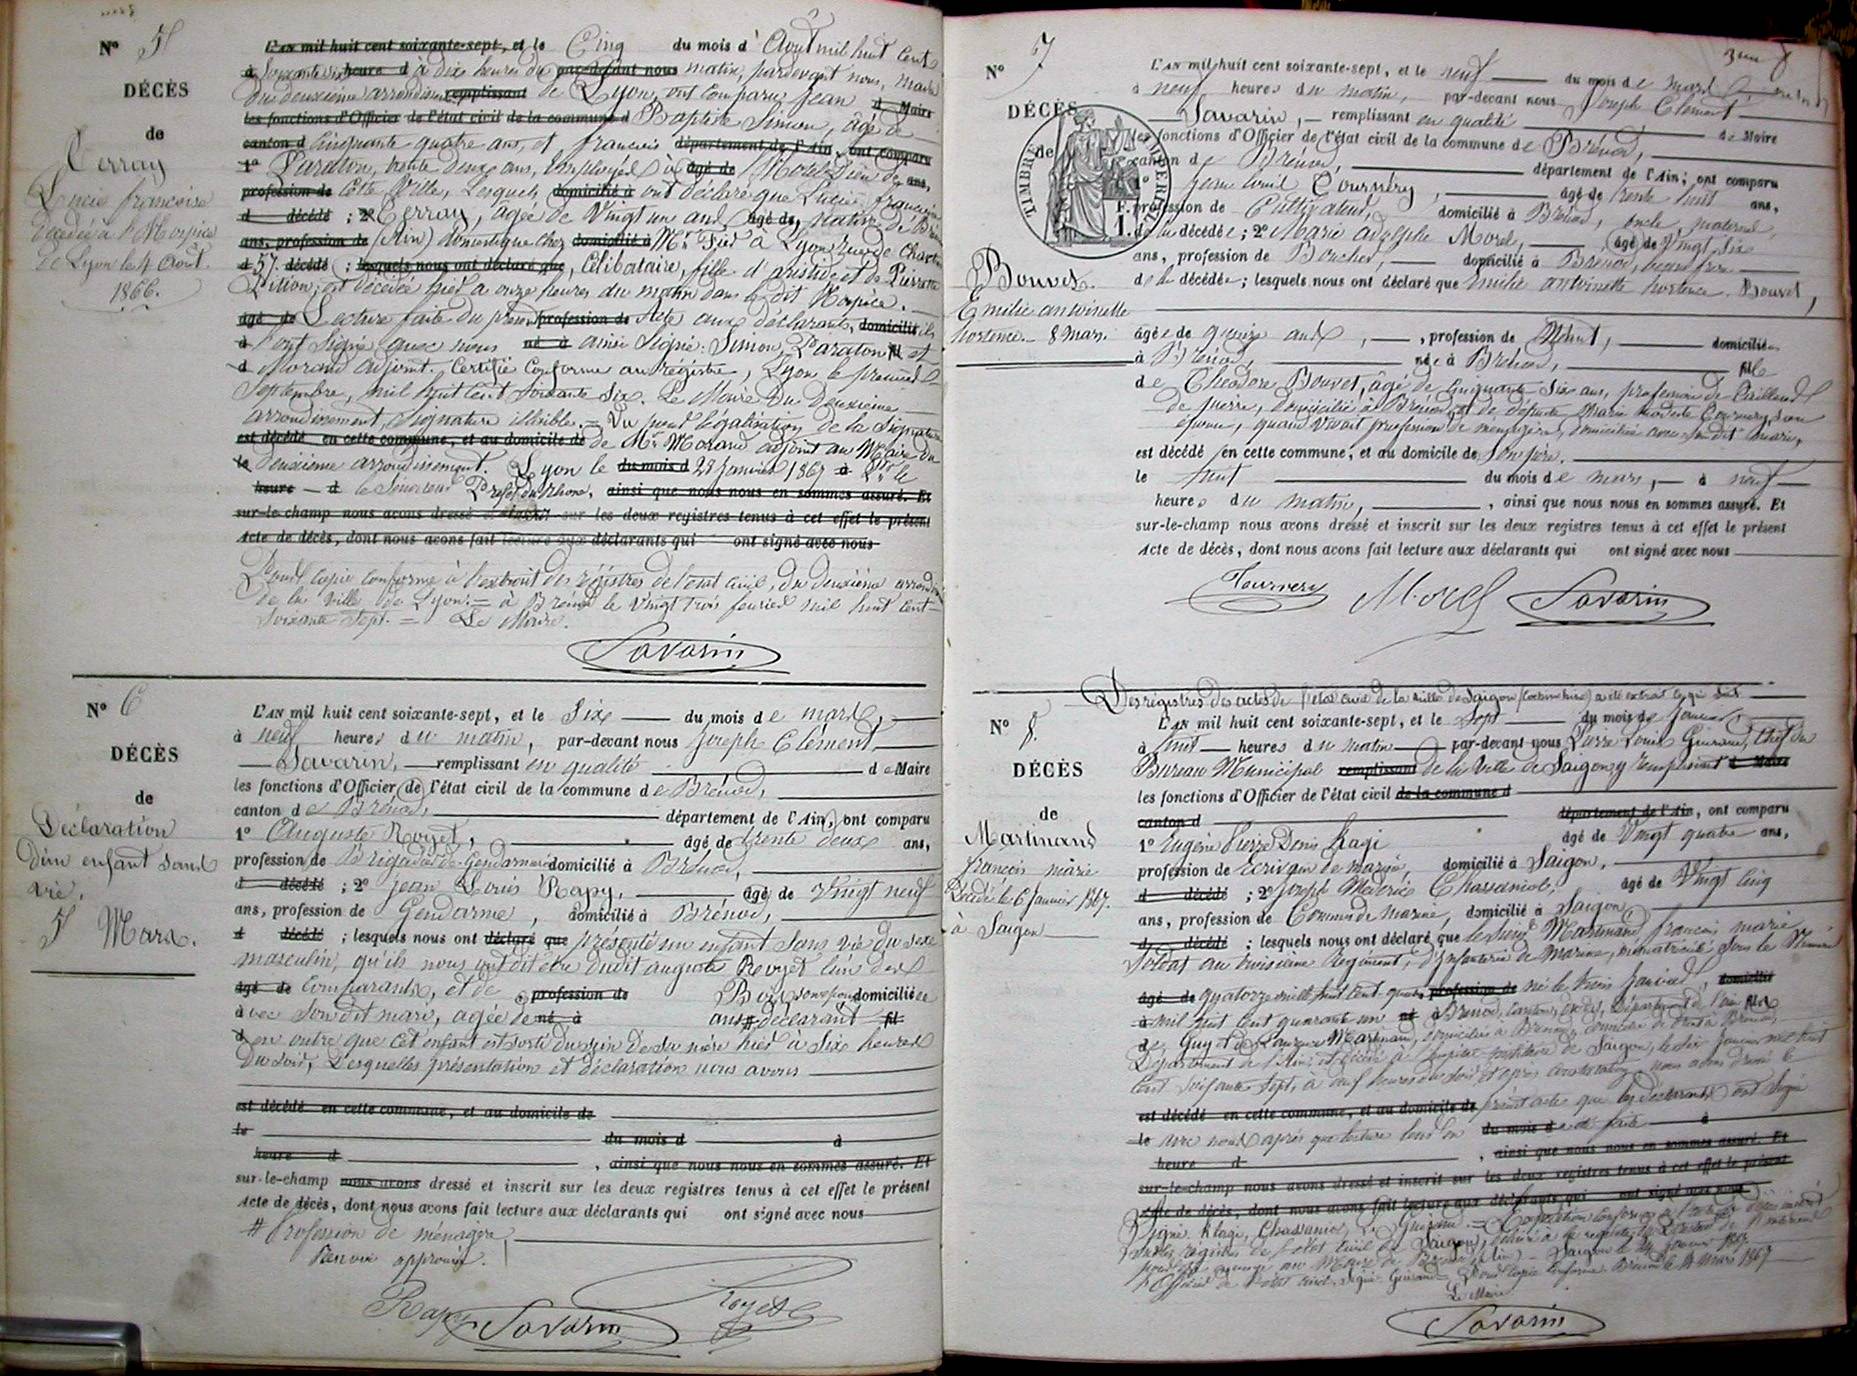 Nº 5
DÉCÈS
de
Perray
Lucie françoise
décédée à l'Hospice
de Lyon le 4 Août.
1866.
L'AN mil huit cent soixante-sept, et le Cinq du mois d'Août mil huit cent
à Soixante six heure d à dix heures du par-devant nous matin, pardevant nous, maire
du deuxième arrondissem remplissant de Lyon, ont Comparu Jean d Maire
les fonctions d'Officier de l'état civil de la commune d Baptiste Simon, âgé de
canton d Cinquante quatre ans, et françois département de l'Ain, ont comparu
1º Paraton, trente deux ans, Employés à âgé de l'Hotel Dieu de ans,
profession de Cette Ville, Lesquels domicilié à ont déclaré que Lucie françoise
d décédé ; 2º Perray, âgée de Vingt un ans âgé de, native de
ans, profession de (Ain) domestique chez domicilié à Mr à Lyon rue de
d 57. décédé ; lesquels nous ont déclaré que, Célibataire, fille d'aristide et de Pierrette
Pition, est décédée hier à onze heures du matin dans le dit Hospice.
âgé de Lecture faite du présent profession de Acte aux déclarants, domicilié ils
à l'ont Signé avec nous né à ainsi Signé: Simon, Paraton fil et
d Morand adjoint. Certifié Conforme au régistre, Lyon le premier
Septembre, mil huit cent soixante Six. Le Maire du Deuxième
arrondissement, Signature illisible. = Vu pour légalisation de la Signature
est décédé en cette commune, et au domicile de de Mr Morand adjoint au Maire du
le deuxième arrondissement. Lyon le du mois d 28 Janvier 1867 à Pr le
heure d le Sénateur Préfet du Rhône, ainsi que nous nous en sommes assuré. Et
sur-le-champ nous avons dressé et inscrit sur les deux registres tenus à cet effet le présent
Acte de décès, dont nous avons fait lecture aux déclarants qui ont signé avec nous
Pour copie conforme à l'extrait des régistres de l'état civil, du deuxième arrondis
de la ville de Lyon. = à Brénod le vingt trois fevrier mil huit cent
soixante sept. = Le Maire.
Savarin
Nº 6
DÉCÈS
de
Déclaration
d'un enfant sans
vie.
5 Mars.
L'AN mil huit cent soixante-sept, et le Six du mois de mars,
à neuf heures du matin, par-devant nous Joseph Clément
Savarin, remplissant en qualité de Maire
les fonctions d'Officier de l'état civil de la commune de Brénod,
canton de Brénod, département de l'Ain, ont comparu
1º Auguste Royet, âgé de trente deux ans,
profession de Brigadier de Gendarmerie domicilié à Brénod,
d décédé ; 2º Jean Louis Rapy, âgé de vingt neuf
ans, profession de Gendarme, domicilié à Brénod,
d décédé ; lesquels nous ont déclaré que présenté un enfant Sans vie du sexe
masculin, qu'ils nous ont dit être dudit auguste Royet l'un des
âgé de Comparants, et de profession de son épouse domiciliée
avec Son dit mari, âgée de né à ans # déclarant fil
d en outre que cet enfant est sorti du sein de sa mère hier à Six heures
du soir, Desquelles présentation et déclaration nous avons
est décédé en cette commune, et au domicile de
le du mois d à
heure d , ainsi que nous nous en sommes assuré. Et
sur-le-champ nous avons dressé et inscrit sur les deux registres tenus à cet effet le présent
Acte de décès, dont nous avons fait lecture aux déclarants qui ont signé avec nous
# Profession de ménagère
Renvoi approuvé.
Rapy Savarin Royet
Nº 7
DÉCÈS
de
TIMBRE IMPERIAL
Bouvet.
Emilie antoinette
hortence. 8 Mars.
L'AN mil huit cent soixante-sept, et le neuf du mois de mars
à neuf heures du matin, par-devant nous Joseph Clément
Savarin, remplissant en qualité de Maire
les fonctions d'Officier de l'état civil de la commune de Brénod,
canton de Brénod département de l'Ain ; ont comparu
1º Jean Louis Tournery, âgé de trente huit ans,
profession de Cultivateur, domicilié à Brénod, oncle maternel,
de la décédée ; 2º Marie adolphe Morel, âgé de Vingt Six
ans, profession de Boucher, domicilié à Brénod, beau frère
de la décédée ; lesquels nous ont déclaré que Emilie antoinette hortence Bouvet,
âgée de quinze ans, profession de Néant, domiciliée
à Brénod, née à Brénod, fille
de Théodore Bouvet, âgé de Cinquante Six ans, profession de Tailleur
de pierre, domicilié à Brénod, et de défunte Marie modeste Tournery, Son
épouse, quand vivait profession de menagère, domiciliée avec Son dit mari,
est décédé en cette commune, et au domicile de Son père.
le huit du mois de mars, à neuf
heures du matin, , ainsi que nous nous en sommes assuré. Et
sur-le-champ nous avons dressé et inscrit sur les deux registres tenus à cet effet le présent
Acte de décès, dont nous avons fait lecture aux déclarants qui ont signé avec nous
Tournery Morel Savarin
Nº 8.
DÉCÈS
de
Martinand
françois marie
Décédé le 6 Janvier 1867.
à Saigon
Des régistres des actes de l'état civil de la ville de Saigon (Cochinchine) a été extrait ce qui suit.
L'AN mil huit cent soixante-sept, et le Sept du mois de Janvier
à huit heures du matin par-devant nous Pierre Louis Guérand, Chef du
Bureau Municipal remplissant de la Ville de Saigon, y remplissant d Maire
les fonctions d'Officier de l'état civil de la commune d
canton d département de l'Ain, ont comparu
1º Eugène Pierre Denis Klagi âgé de Vingt quatre ans,
profession de Ecrivain de marine, domicilié à Saigon,
d décédé ; 2º Joseph Médéric Chassaniol, âgé de Vingt Cinq
ans, profession de Commis de Marine, domicilié à Saigon
d décédé ; lesquels nous ont déclaré que le Sieur Martinand françois marie
Soldat au troisième Régiment d'Infanterie de Marine, immatriculé sous le Numéro
âgé de quatorze mille huit cent profession de né le trois Janvier domicilié
à mil huit cent quarante un né à Brénod, Canton, id, Département de l'ain fils
de Guy et de Martinand, domicilié à Brénod,
Département de l'Ain est décédé à l'hôpital de Saigon, le Six Janvier mil huit
cent soixante sept, à neuf heures du Soir et après constatation, nous avons dressé le
est décédé en cette commune, et au domicile de présent acte que les déclarants ont Signé
le avec nous après que lecture leur en du mois d a été faite à
heure d , ainsi que nous nous en sommes assuré. Et
sur-le-champ nous avons dressé et inscrit sur les deux registres tenus à cet effet le présent
Acte de décès, dont nous avons fait lecture aux déclarants qui ont signé avec nous
Signé Klagi, Chassaniol, Guérand. = Expédition conforme à
registres de l'état civil de Saigon, délivré
pour être envoyé au Maire de Brénod (Ain) Saigon le 24 Janvier 1867.
l'Officier de l'état civil, signé Guérand. Pour copie conforme Brénod le Mars 1867
Le Maire
Savarin